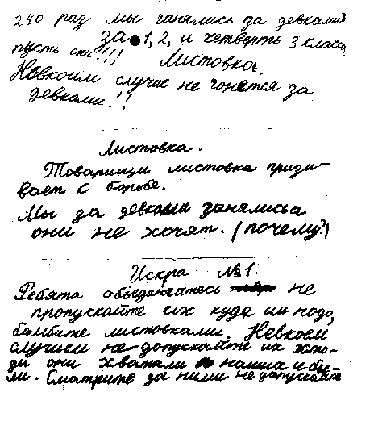 250 раз мы гонялись за девками
за 1, 2, и четверть 3 класса
пусть они!!!
Листовка.
Невкоем случие не гонятся за
девками!!
Листовка.
Товарищи листовка призы-
вает к борьбе.
Мы за девками гонялись а
они не хотят. (почему?)
Искра №1.
Ребята объединяйтесь не
пропускайте их куда им надо,
бомбите листовками. Невкоем
случием не допускайте их
они хватали наших и би-
ли. Смотрите за ними не допускайте